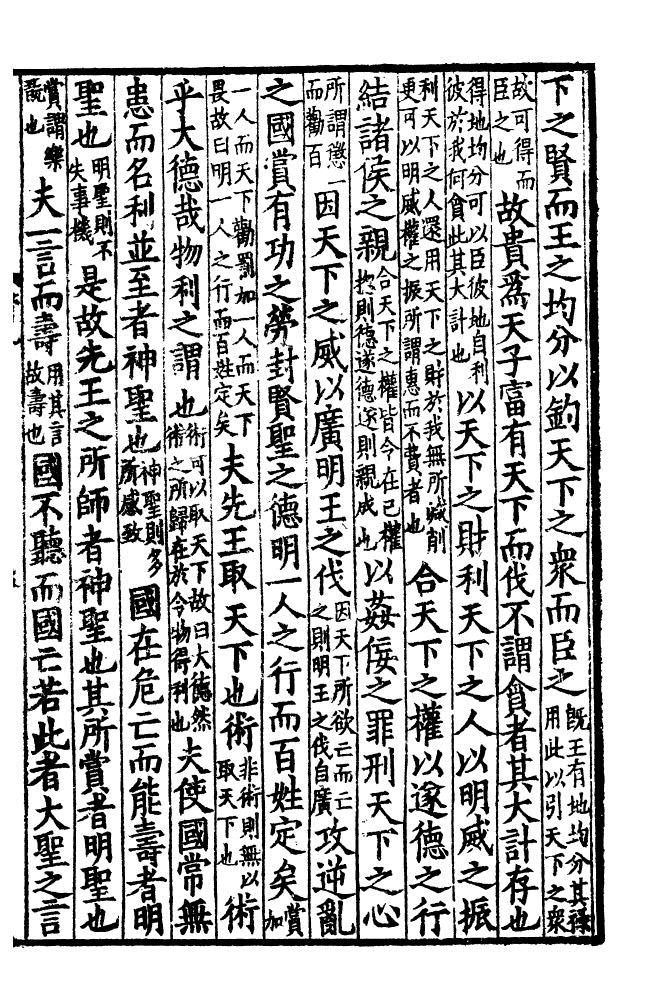 下之賢而王之均分以釣天下之衆而臣之既王有地均分其祿用此以引天下之衆
故可得而臣之也故貴爲天子富有天下而伐不謂貪者其大計存也
得地均分可以臣彼地自利彼於我何貪此其大計也以天下之財利天下之人以明威之振
利天下之人還用天下之財於我無所減削更可以明威權之振所謂惠而不費者也合天下之權以遂德之行
結諸侯之親合天下之權皆今在己權抱則德遂德遂則親成也以姦佞之罪刑天下之心
所謂懲一而勸百因天下之威以廣明王之伐因天下所欲亡而亡之則明王之伐自廣攻逆亂
之國賞有功之勞封賢聖之德明一人之行而百姓定矣賞加
一人而天下勸罰加一人而天下畏故曰明一人之行而百姓定矣夫先王取天下也術非術則無以取天下也術
乎大德哉物利之謂也術可以取天下故曰大德然術之所歸在於令物得利也夫使國常無
患而名利並至者神聖也神聖則多所感致國在危亡而能壽者明
聖也明聖則不失事機是故先王之所師者神聖也其所賞者明聖也
賞謂樂翫也夫一言而壽用其言故壽也國不聽而國亡若此者大聖之言